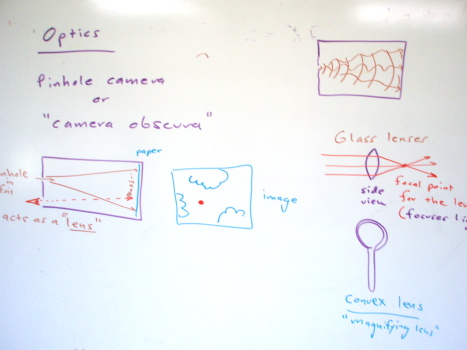 Optics
Pinhole camera
or
"camera obscura"
paper
inhole
in
acts as a "lens"
image
Glass lenses
side
view
focal point
for the le
(focuses li
Convex lens
"magnifying lens"